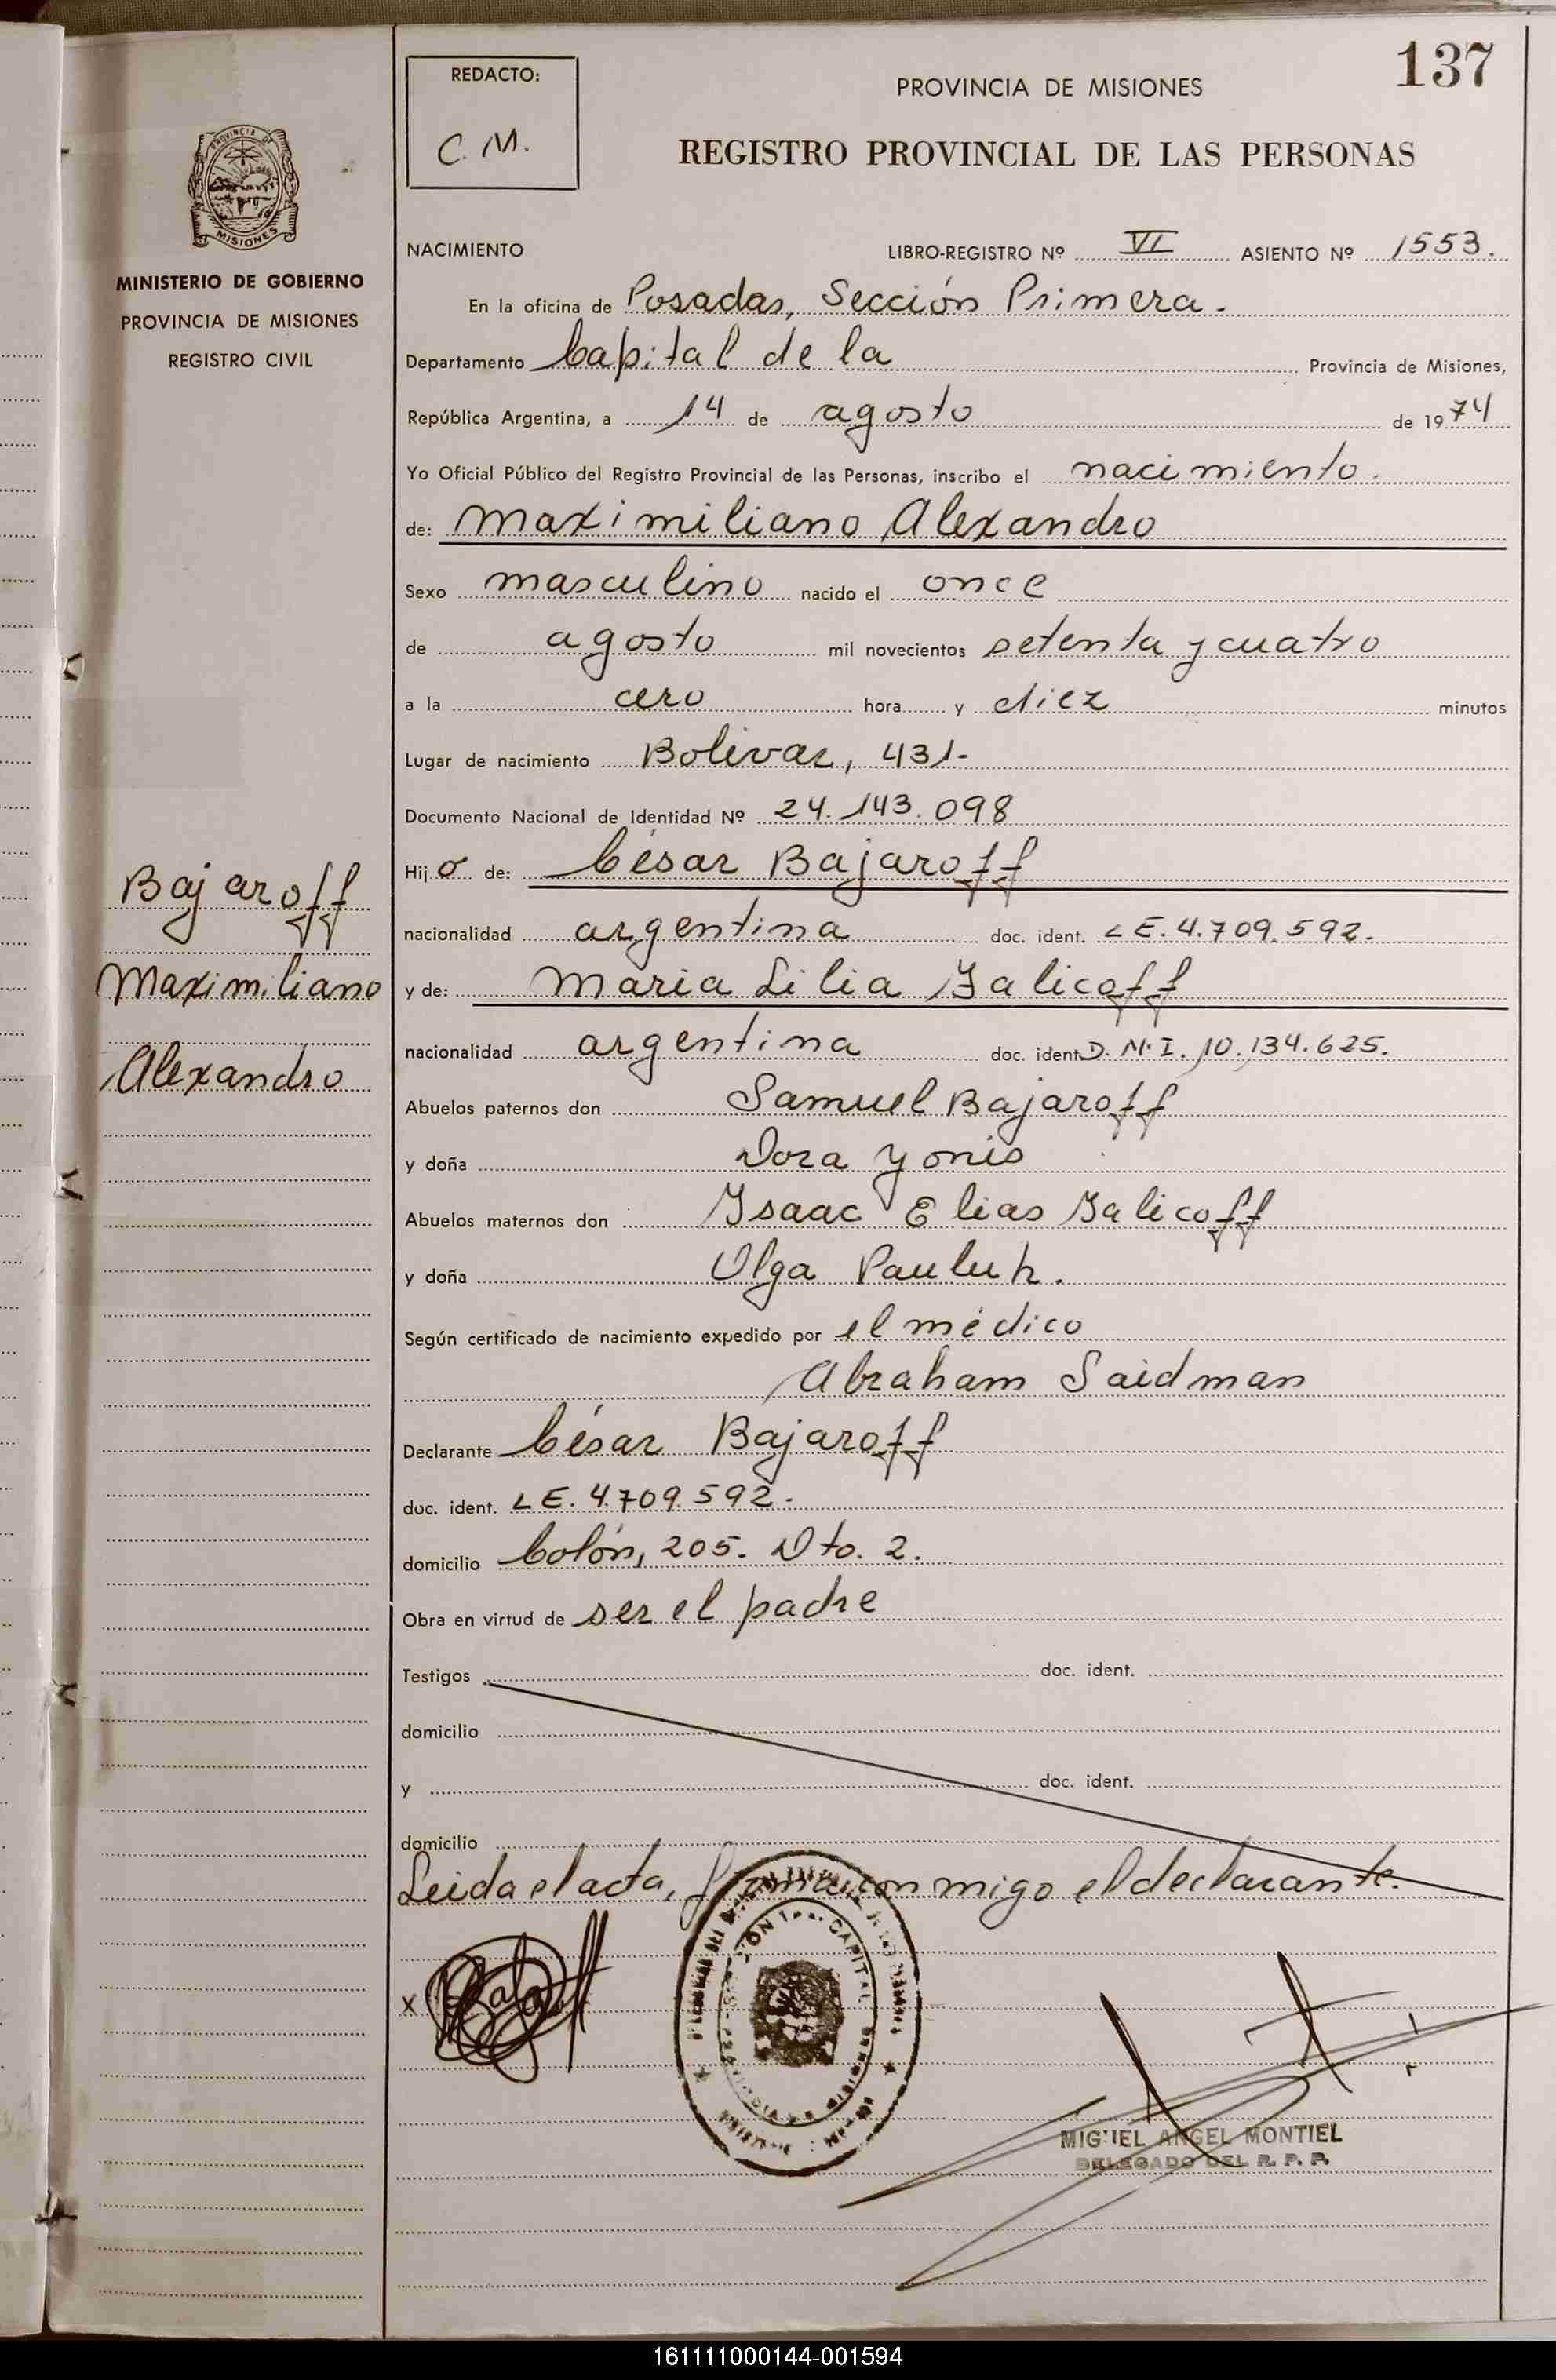 137
REDACTO:
C. M.
PROVINCIA DE MISIONES
REGISTRO PROVINCIAL DE LAS PERSONAS
PROVINCIA DE
MISIONES
MINISTERIO DE GOBIERNO
PROVINCIA DE MISIONES
REGISTRO CIVIL
NACIMIENTO LIBRO-REGISTRO Nº VI ASIENTO Nº 1553.
En la oficina de Posadas, Sección Primera.
Departamento Capital de la Provincia de Misiones,
República Argentina, a 14 de agosto de 1974
Yo Oficial Público del Registro Provincial de las Personas, inscribo el nacimiento.
de: Maximiliano Alexandro
Sexo masculino nacido el once
de agosto mil novecientos setenta y cuatro
a la cero hora y diez minutos
Lugar de nacimiento Bolivar, 431-
Documento Nacional de Identidad Nº 24.143.098
Hijo de: César Bajaroff
nacionalidad argentina doc. ident. LE. 4.709.592.
y de: Maria Lilia Jalicoff
nacionalidad argentina doc. ident. D.N.I. 10.134.625.
Abuelos paternos don Samuel Bajaroff
y doña Dora Yonis
Abuelos maternos don Isaac Elias Jalicoff
y doña Olga Pauluk.
Según certificado de nacimiento expedido por el médico
Abraham Saidman
Declarante César Bajaroff
doc. ident. LE. 4.709.592.
domicilio Colón, 205. Dto. 2.
Obra en virtud de ser el padre
Testigos doc. ident.
domicilio
y doc. ident.
domicilio
Leida el acta, firma con migo el declarante.
Bajaroff
Maximiliano
Alexandro
x
CAPITAL
MIGUEL ANGEL MONTIEL
DELEGADO DEL R. P. P.
161111000144-001594